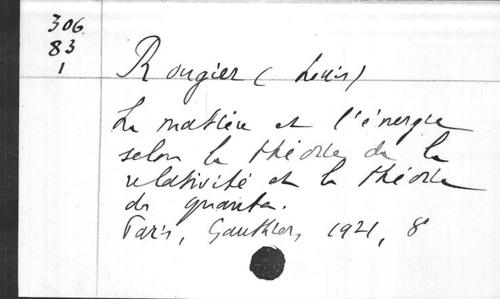 306
83
1
Rougier (Louis)
La matière et l'énergie
selon la théorie de la
relativité et la théorie
des quanta.
Paris, Gauthier, 1921, 8°